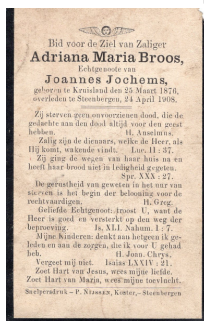 Bid voor de Ziel van Zaliger
Adriana Maria Broos,
Echtgenoote van
Joannes Jochems,
geboren te Kruisland den 25 Maart 1876,
overleden te Steenbergen, 24 April 1908.
Zij sterven geen onvoorzienen dood, die de
gedachte aan den dood altijd voor den geest
hebben. H. Anselmus.
Zalig zijn de dienaars, welke de Heer, als
Hij komt, wakende vindt. Luc. II : 37.
Zij ging de wegen van haar huis na en
heeft haar brood niet in ledigheid gegeten.
Spr. XXX : 27.
De gerustheid van geweten in het uur van
sterven is het begin der belooning voor de
rechtvaardigen. H. Greg.
Geliefde Echtgenoot: troost U, want de
Heer is goed en versterkt op den weg der
beproeving. Is. XLI. Nahum. I : 7.
Mijne Kinderen: denkt aan hetgeen ik ge-
leden en aan de zorgen, die ik voor U gehad
heb. H. Joan. Chrys.
Vergeet mij niet. Isaias LXXIV : 21.
Zoet Hart van Jesus, wees mijne liefde.
Zoet Hart van Maria, wees mijne toevlucht.
Snelpersdruk – P. Nijssen, Koster, - Steenbergen